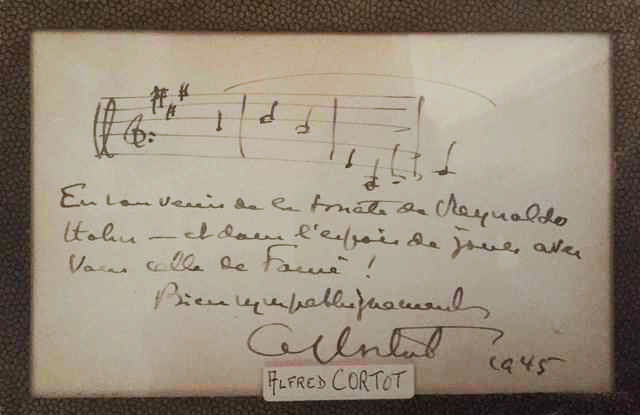 En souvenir de la sonate de Reynaldo
Hahn — et dans l'espoir de jouer avec
vous celle de Fauré !
Bien sympathiquement
A Cortot
1945
ALFRED CORTOT